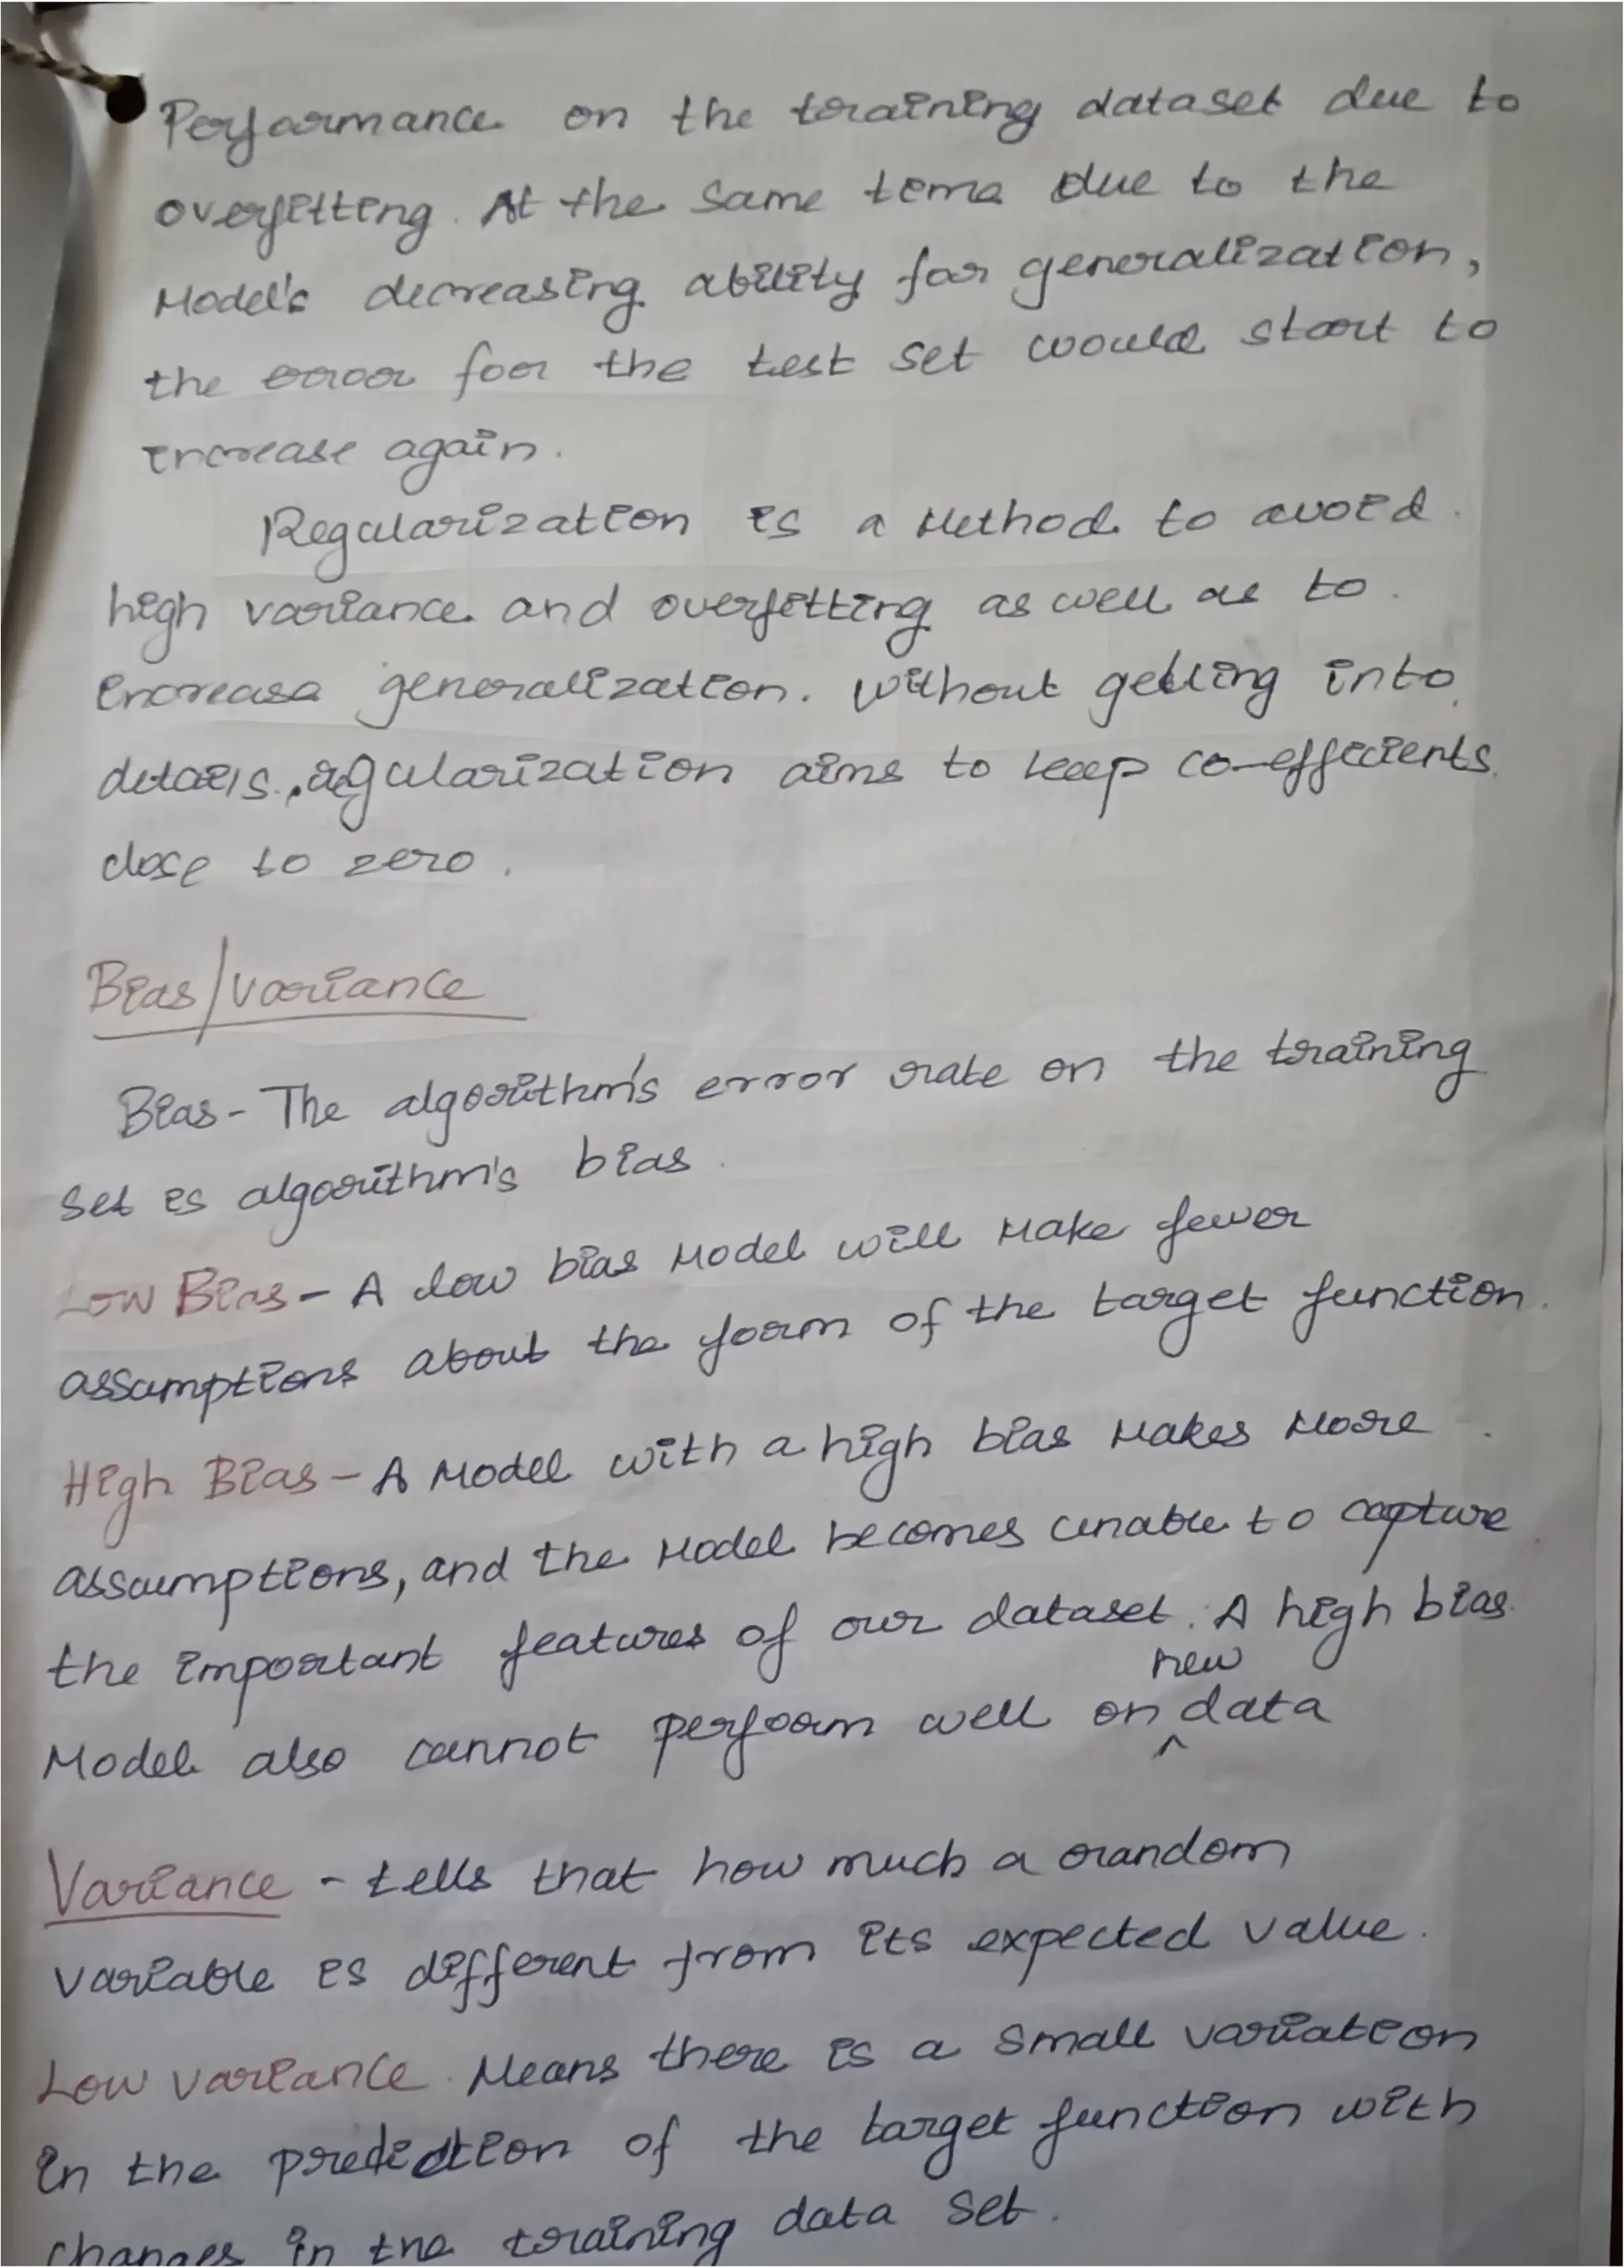 Performance on the training dataset due to
overfitting. At the same time due to the
Model's decreasing ability for generalization,
the error for the test set would start to
increase again.
Regularization is a Method to avoid
high variance and overfitting as well as to
increase generalization. Without getting into
details, regularization aims to keep co-efficients
close to zero.
Bias/variance
Bias - The algorithm's error rate on the training
set is algorithm's bias
Low Bias - A low bias Model will Make fewer
assumptions about the form of the target function.
High Bias - A Model with a high bias Makes More
assumptions, and the Model becomes unable to capture
the important features of our dataset. A high bias
new
Model also cannot perform well on ^ data
Variance - tells that how much a random
variable is different from its expected value.
Low variance Means there is a small variation
in the prediction of the target function with
changes in the training data set.